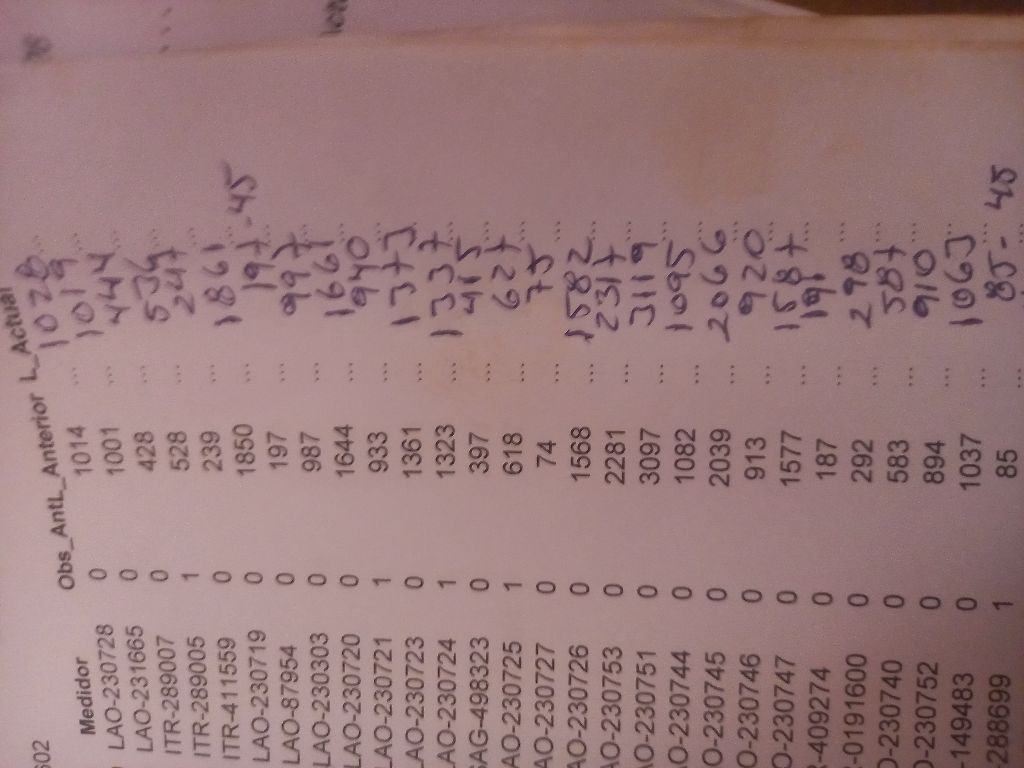 602
Medidor Obs_AntL_Anterior L_Actual
LAO-230728 0 1014 ... 1028 ...
LAO-231665 0 1001 ... 1019 ...
ITR-289007 0 428 ... 444 ...
ITR-289005 1 528 ... 536 ...
ITR-411559 0 239 ... 247 ...
LAO-230719 0 1850 ... 1861 ...
LAO-87954 0 197 ... 197 - 45
LAO-230303 0 987 ... 997 ...
LAO-230720 0 1644 ... 1661 ...
AO-230721 1 933 ... 940 ...
AO-230723 0 1361 ... 1373 ...
AO-230724 1 1323 ... 1337 ...
AG-498323 0 397 ... 415 ...
AO-230725 1 618 ... 627 ...
AO-230727 0 74 ... 75 ...
AO-230726 0 1568 ... 1582 ...
AO-230753 0 2281 ... 2317 ...
AO-230751 0 3097 ... 3119 ...
O-230744 0 1082 ... 1095 ...
O-230745 0 2039 ... 2066 ...
O-230746 0 913 ... 920 ...
O-230747 0 1577 ... 1587 ...
-409274 0 187 ... 191 ...
-0191600 0 292 ... 298 ...
-230740 0 583 ... 587 ...
-230752 0 894 ... 910 ...
-1149483 0 1037 ... 1063 ...
288699 1 85 ... 85 - 45